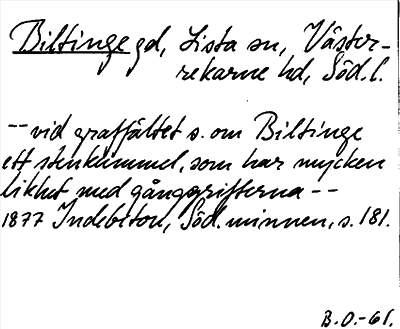 Biltinge gd, Lista sn, Väster-
rekarne hd, Söd. l.
-- vid graffältet s. om Biltinge
ett stenkummel, som har mycken
likhet med gånggrifterna --
1877 Indebetou, Söd. minnen, s. 181.
B.O.-61.